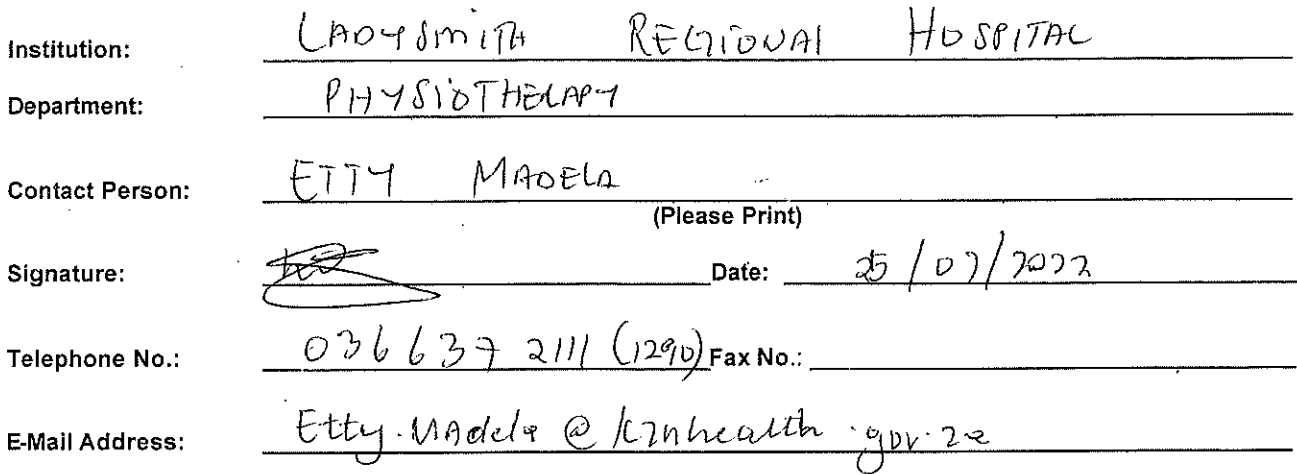 Institution: LADYSMITH REGIONAL HOSPITAL
Department: PHYSIOTHERAPY
Contact Person: ETTY MADELA
(Please Print)
Signature: Date: 25/07/2022
Telephone No.: 036 637 2111 (1290) Fax No.:
E-Mail Address: Etty.Madela@kznhealth.gov.za